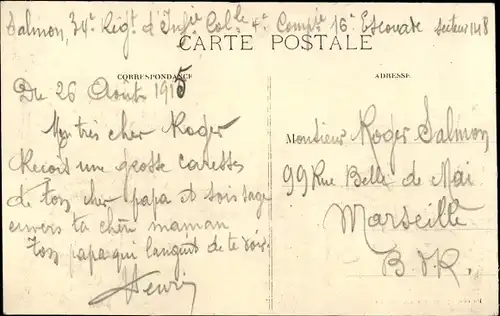 Salmon, 34e Regt d'Infie Colle 4e Compie 16e Escouade secteur 148
CARTE POSTALE
CORRESPONDANCE
Du 26 Août 1915
Mon très cher Roger
Recoit une grosse caresses
de ton cher papa et sois sage
envers ta chère maman
Ton papa qui languit de te voir.
Henri
ADRESSE
Monsieur Roger Salmon
99 Rue Belle de Mai
Marseille
B. d. R.